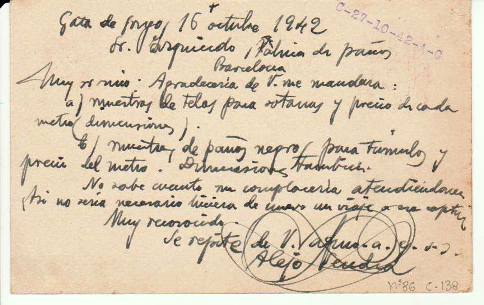 Gata de Gorgos, 16 octubre 1942
C-27-10-42-1-G
Sr. Izquierdo, Fábrica de paños
Barcelona
Muy sr mio: Agradeceria de V. me mandara:
a) muestras de telas para sotanas y precio de cada
metro (dimensiones).
b) muestras de paños negros, para túmulos y
precio del metro. Dimensiones tambien.
No sabe cuanto me complaceria atendiendome,
Asi no seria necesario hiciera de nuevo un viaje a esa capital
Muy reconocido.
Se repite de V. affmo. a. y s. s.
Alejo
nº 86 C-138